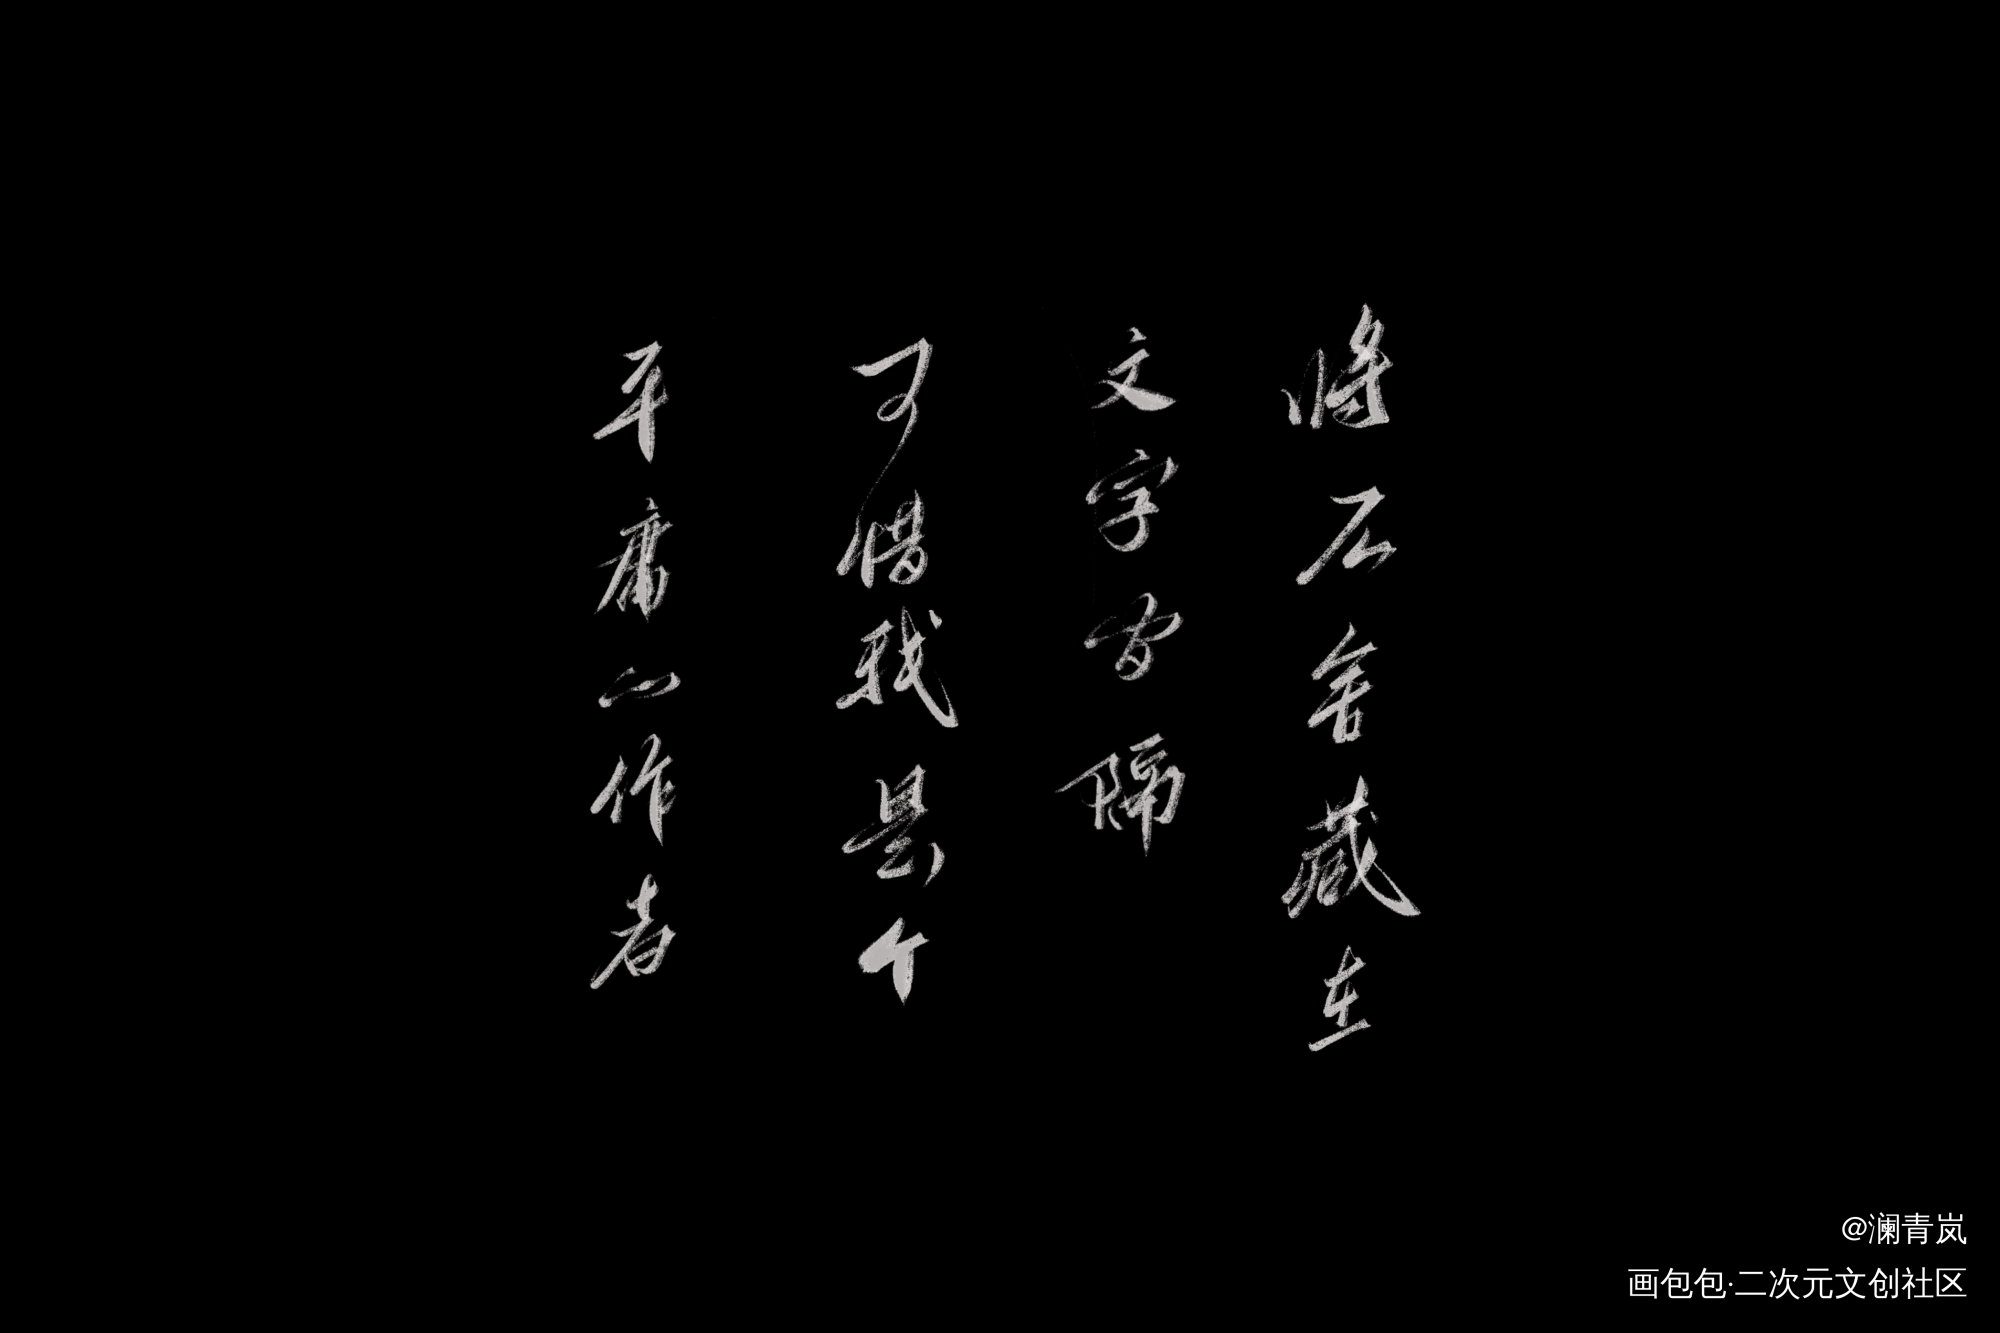 将不舍藏在
文字间隔
可惜我是个
平庸的作者
@澜青岚
画包包·二次元文创社区